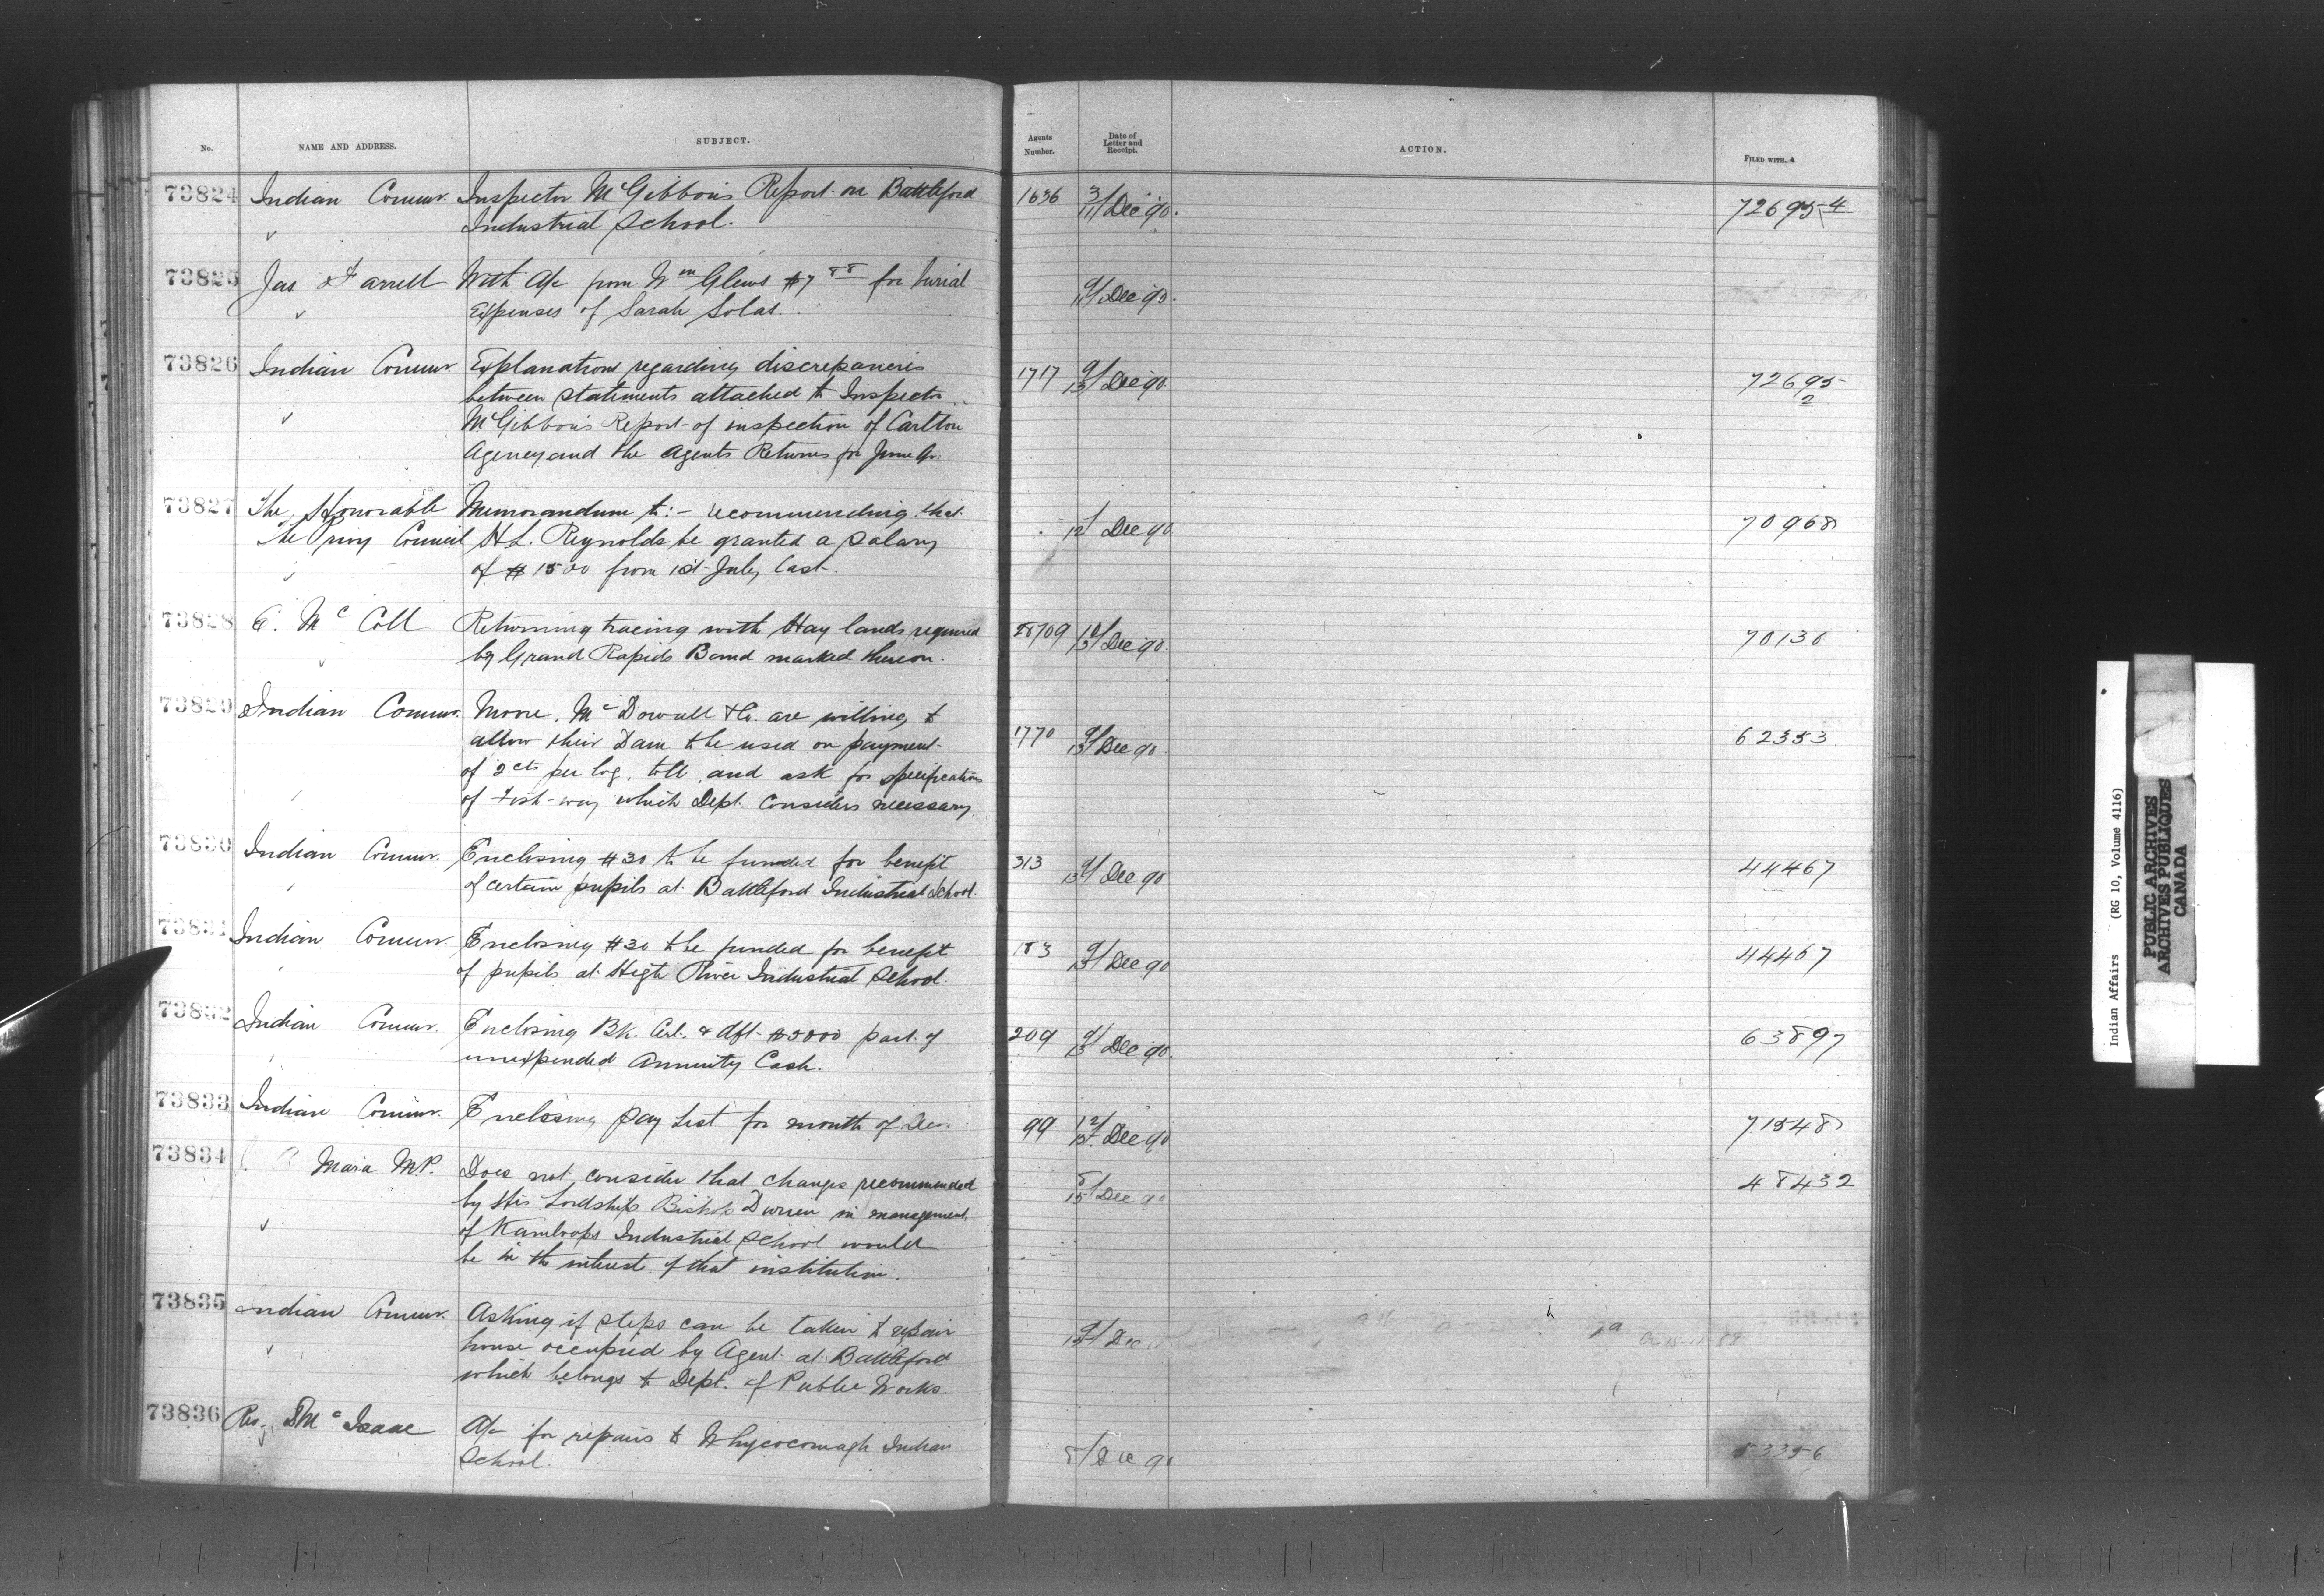 No.
NAME AND ADDRESS.
SUBJECT.
Agents Number.
Date of Letter and Receipt.
ACTION.
FILED WITH.
73824 Indian Commr. Inspector McGibbon's Report on Battleford 1636 3/11 Dec 90. 72695-4
Industrial School.
73825 Jas Farrell With A/c from Wm Glews $7 88 for burial 9/11 Dec 90.
Expenses of Sarah Solas.
73826 Indian Commr. Explanations regarding discrepancies 1717 9/13 Dec 90 72695
between statements attached to Inspector 2
McGibbon's Report of inspection of Carlton
Agency and the Agents Returns for June Qr.
73827 The Honorable Memorandum to:- recommending that 12 Dec 90 70968
the Privy Council H.L. Reynolds be granted a Salary
of $1500 from 1st July last.
73828 E. McColl Returning tracing with Hay lands required 28/09 10/13 Dec 90. 70136
by Grand Rapids Band marked thereon.
73829 Indian Commr. Moore, McDowall & Co. are willing to
allow their Dam to be used on payment 1770 9/13 Dec 90 62353
of 2cts per log, toll, and ask for specifications
of Fish-way which Dept. considers necessary
73830 Indian Commr. Enclosing $30 to be funded for benefit 313 9/13 Dec 90 44467
of certain pupils at Battleford Industrial School.
73831 Indian Commr. Enclosing $30 to be funded for benefit 183 9/13 Dec 90 44467
of pupils at High River Industrial School.
73832 Indian Commr. Enclosing Bk. Cert. & dft. $5000 part of 209 9/13 Dec 90. 63897
unexpended Annuity Cash.
73833 Indian Commr. Enclosing pay List for month of Dec. 99 12/15 Dec 90 71548
73834 Mara M.P. Does not consider that changes recommended 8/15 Dec 90 48432
by His Lordship Bishop Durieu in management
of Kamloops Industrial School would
be in the interest of that institution.
73835 Indian Commr. Asking if steps can be taken to repair
house occupied by Agent at Battleford Dec
which belongs to Dept. of Public Works.
73836 Rev. D McIsaac A/c for repairs to Whycocomagh Indian 8/ Dec 90 53356
School.
Indian Affairs (RG 10, Volume 4116)
PUBLIC ARCHIVES
ARCHIVES PUBLIQUES
CANADA